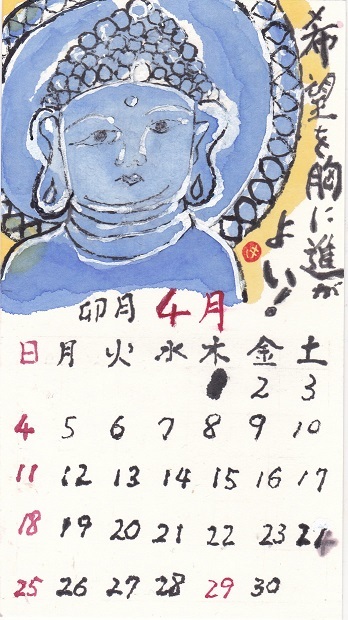 希望を胸に進が
よい!
卯月 4月
日 月 火 水 木 金 土
1 2 3
4 5 6 7 8 9 10
11 12 13 14 15 16 17
18 19 20 21 22 23 21
25 26 27 28 29 30